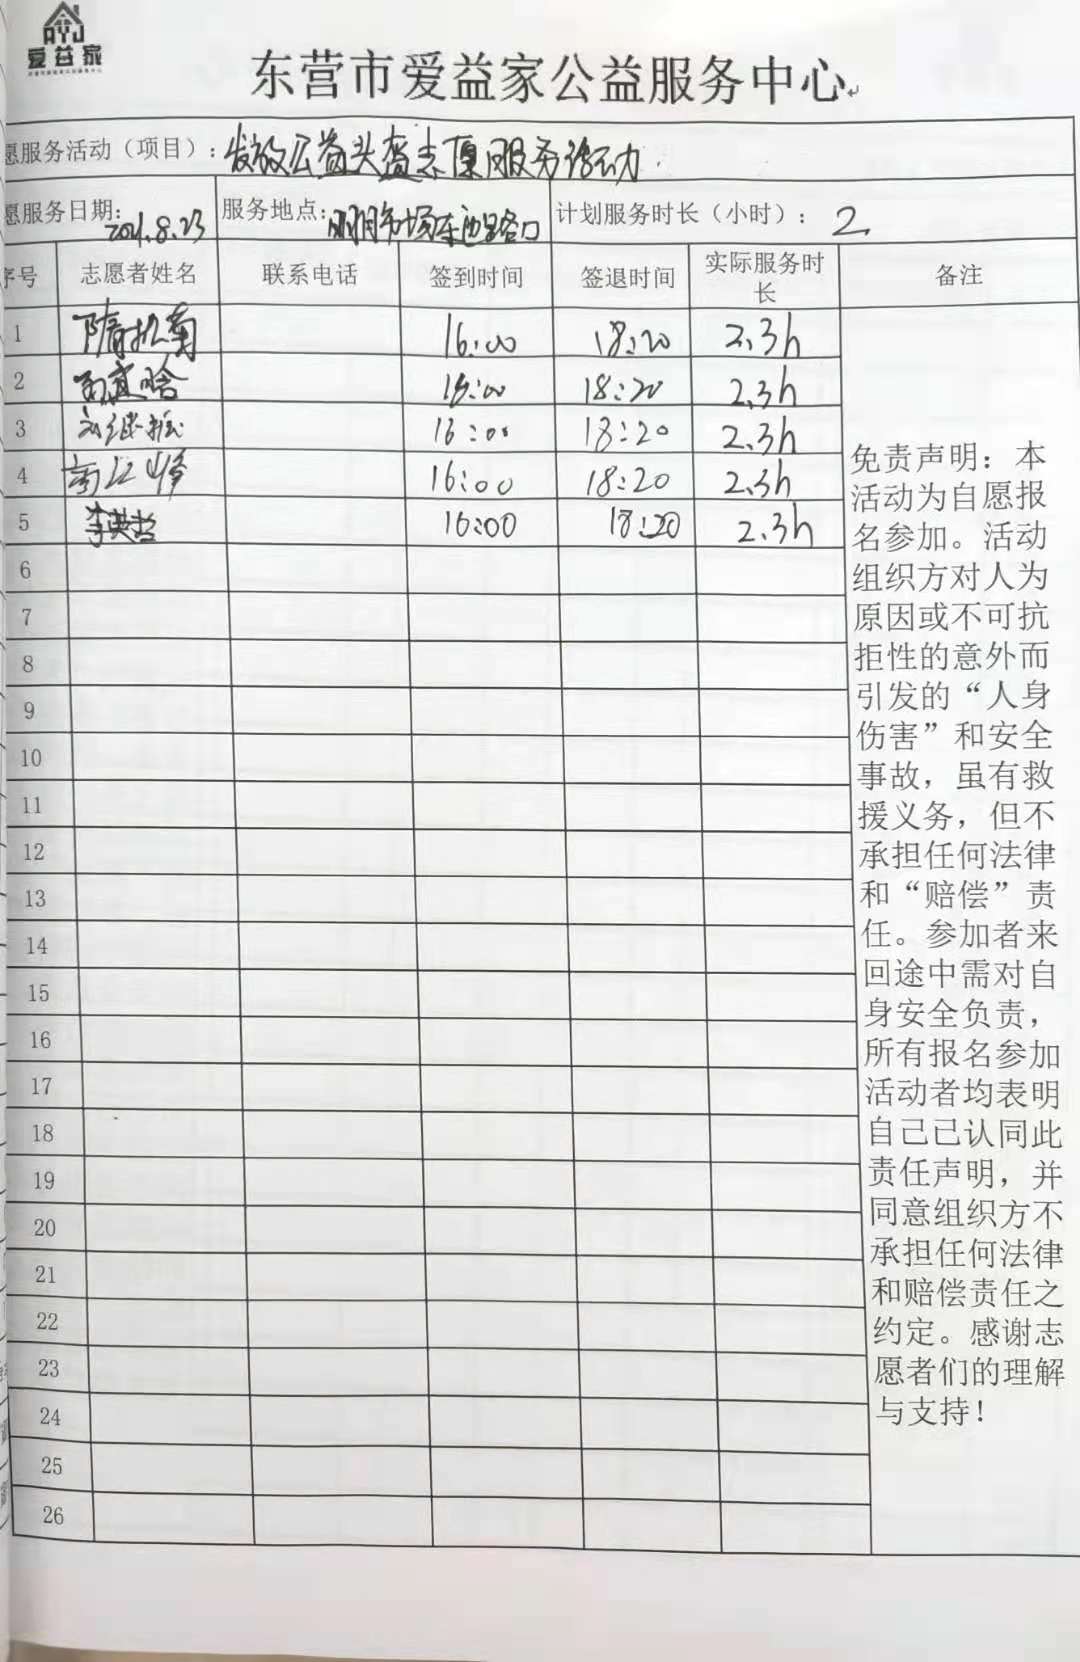 爱益家
东营市爱益家公益服务中心
愿服务活动（项目）：发放公益头盔志愿服务活动
愿服务日期：2021.8.23 服务地点：明月市场东西路口 计划服务时长（小时）：2.
序号 志愿者姓名 联系电话 签到时间 签退时间 实际服务时长 备注
1 隋 16:00 18:20 2.3h
2 16:00 18:20 2.3h
3 16:00 18:20 2.3h
4 16:00 18:20 2.3h
5 李英哲 16:00 18:20 2.3h
6
7
8
9
10
11
12
13
14
15
16
17
18
19
20
21
22
23
24
25
26
免责声明：本
活动为自愿报
名参加。活动
组织方对人为
原因或不可抗
拒性的意外而
引发的“人身
伤害”和安全
事故，虽有救
援义务，但不
承担任何法律
和“赔偿”责
任。参加者来
回途中需对自
身安全负责，
所有报名参加
活动者均表明
自己已认同此
责任声明，并
同意组织方不
承担任何法律
和赔偿责任之
约定。感谢志
愿者们的理解
与支持！